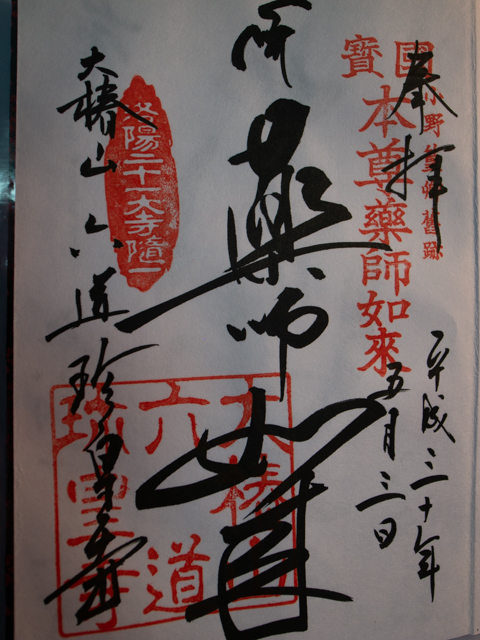 奉拝
小野篁卿舊跡
國寶
本尊薬師如來
平成三十年
五月三日
薬師如来
洛陽二十一大寺随一
大椿山六道珍皇寺
大椿山
六道
珍皇寺